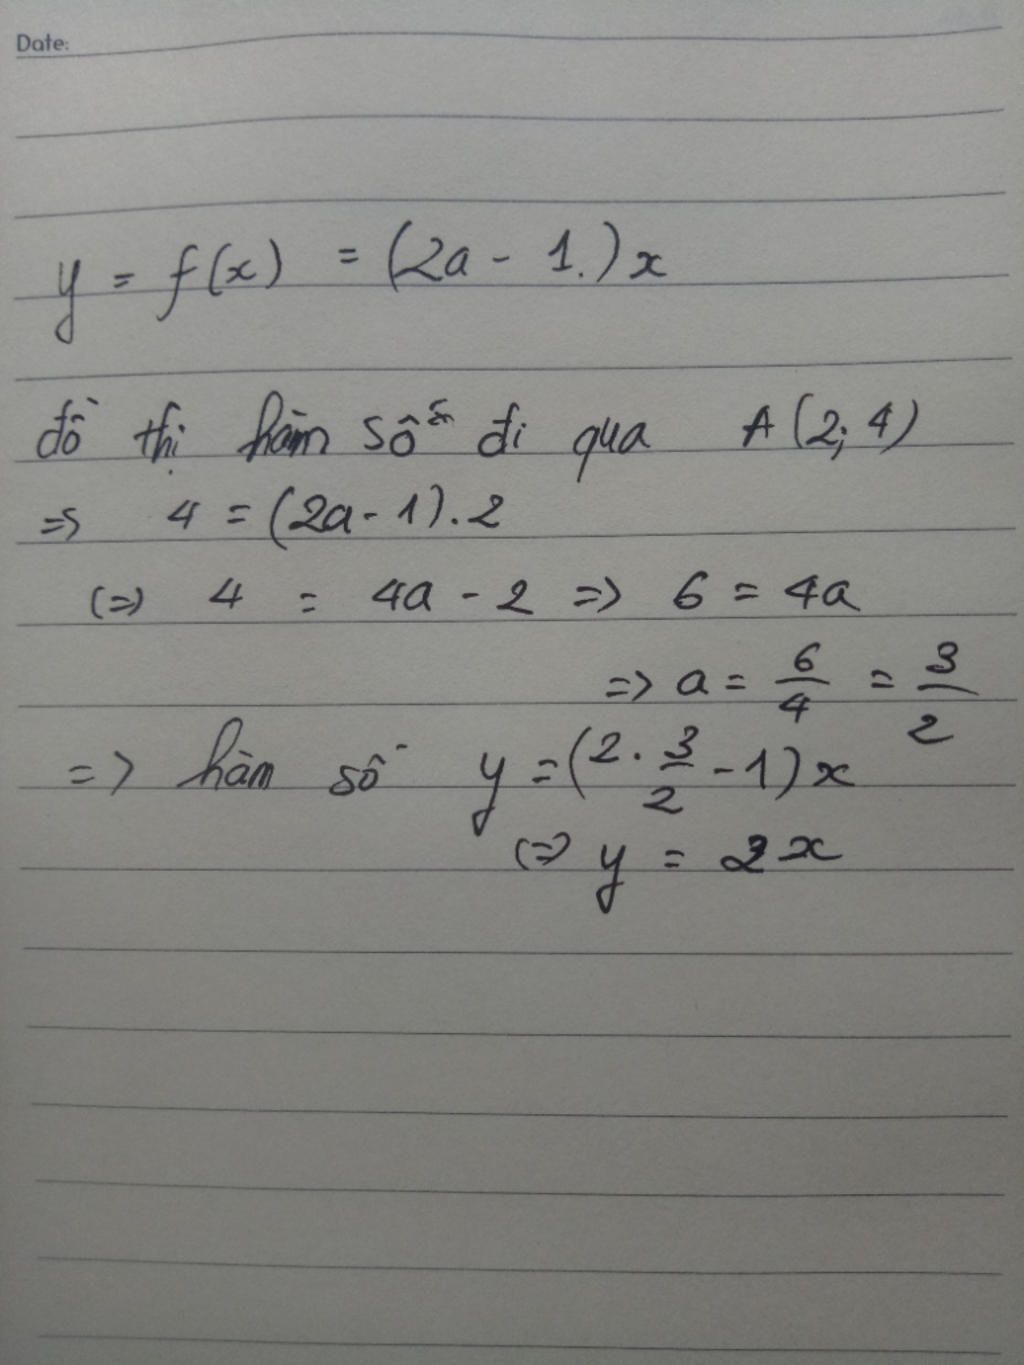 Date:
y = f(x) = (2a - 1.)x
đồ thị hàm số đi qua A(2; 4)
=> 4 = (2a - 1).2
(=) 4 = 4a - 2 => 6 = 4a
=> a = 6/4 = 3/2
=> hàm số y = (2 . 3/2 - 1)x
(=) y = 2x